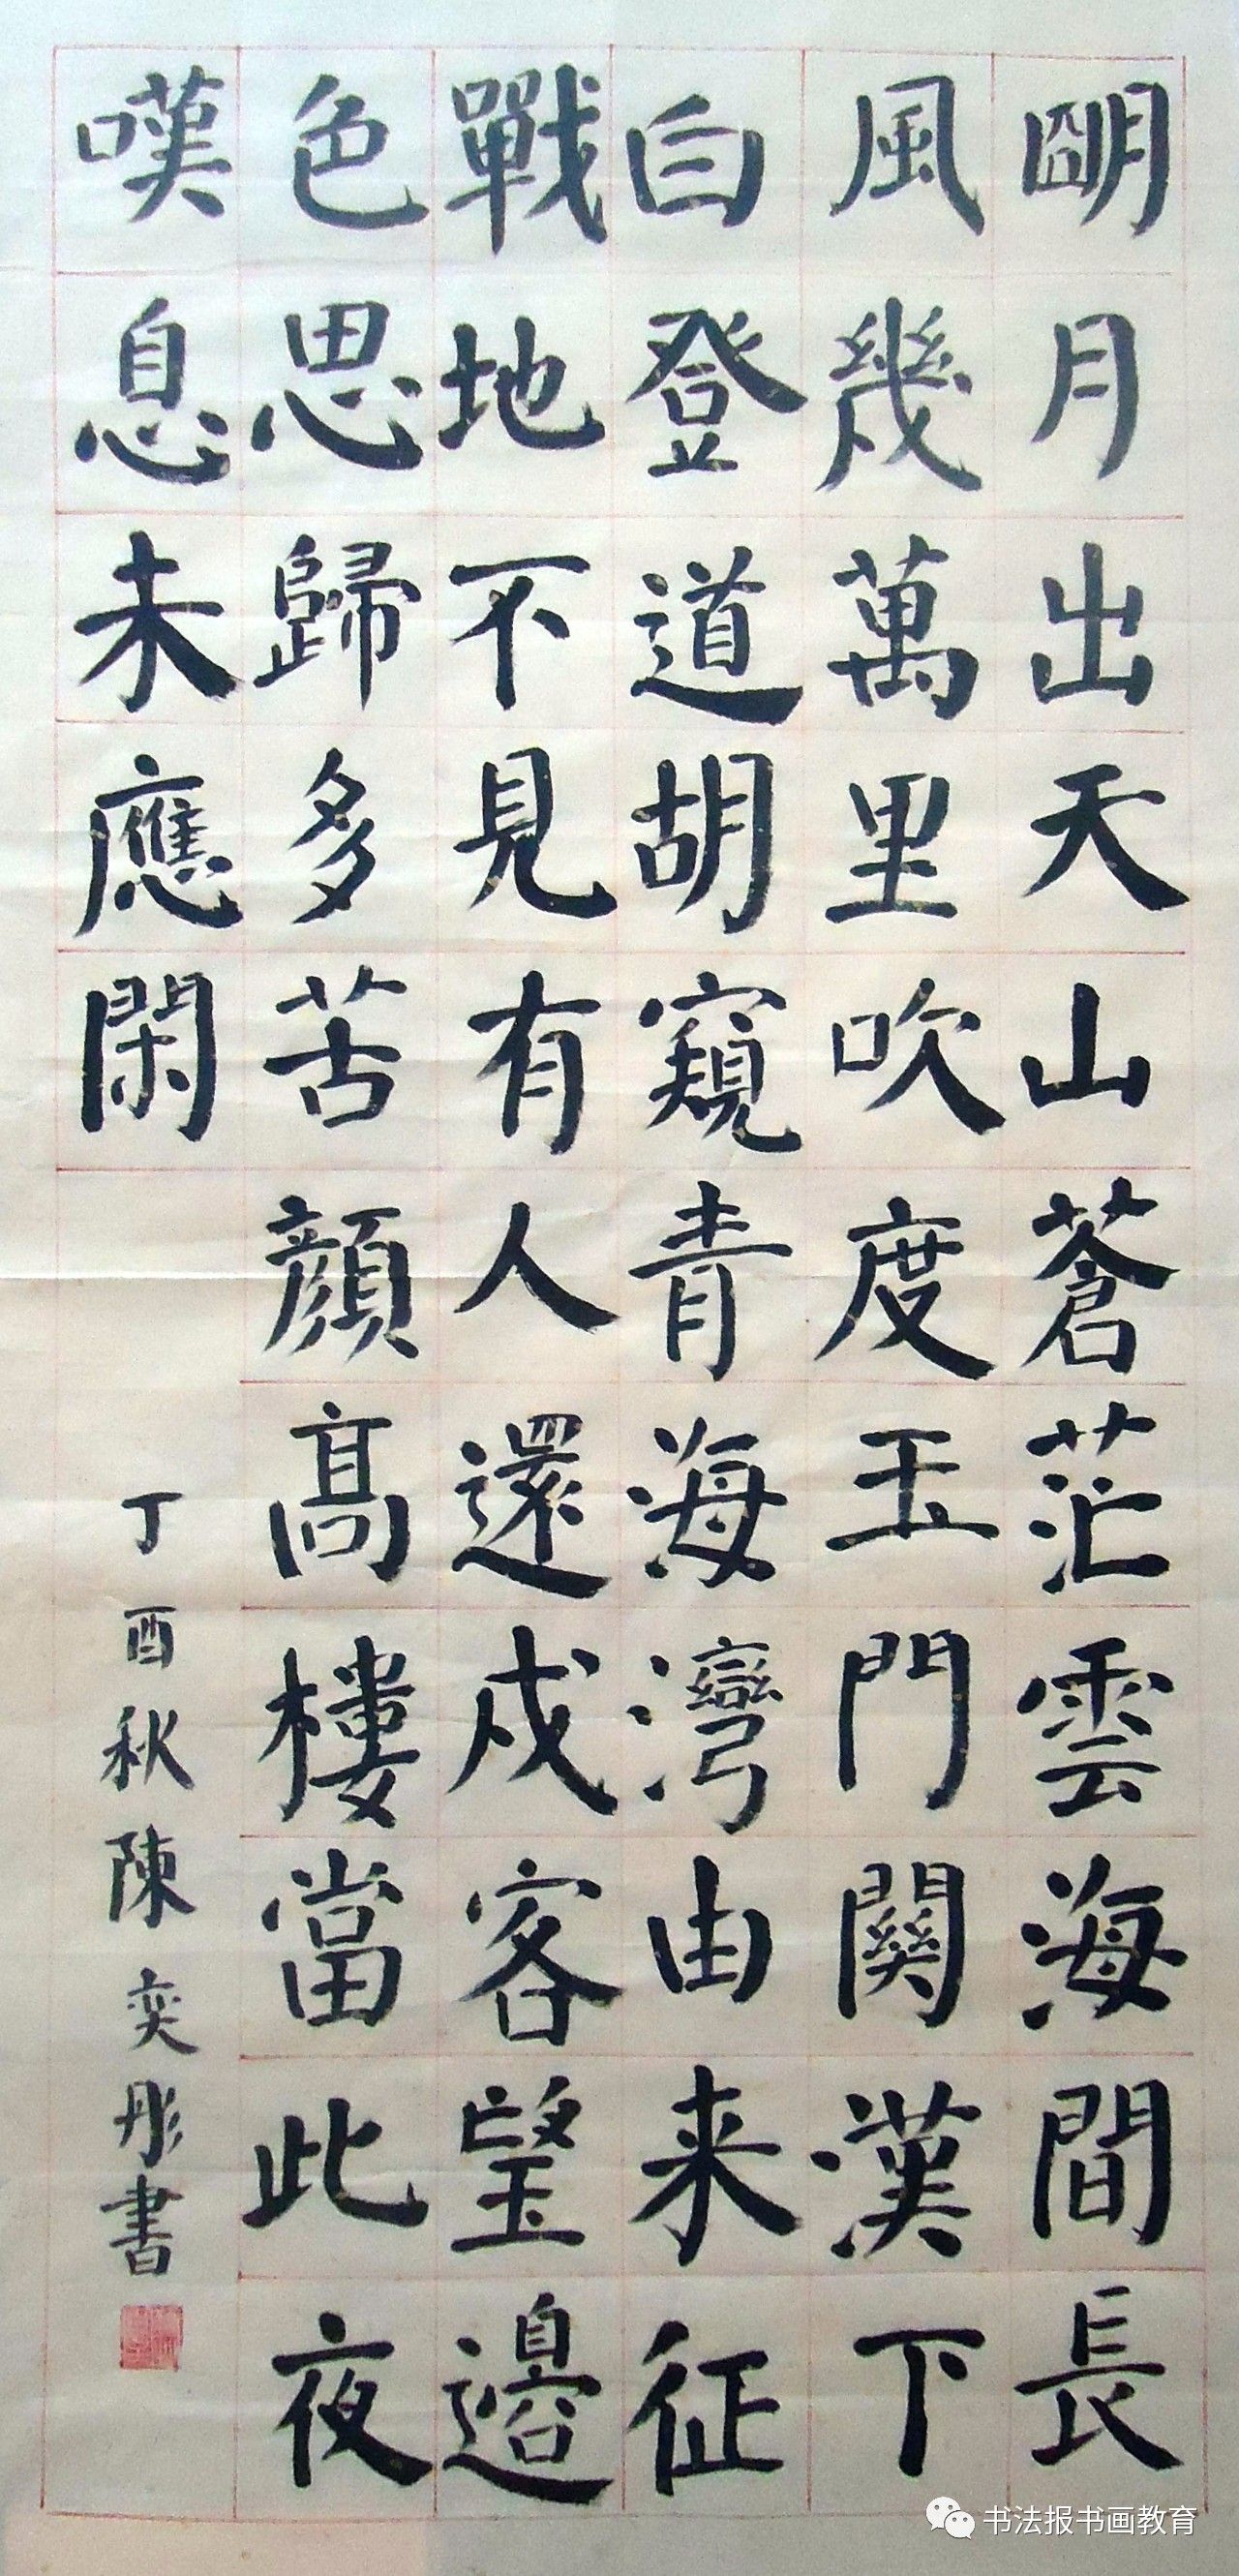 朙月出天山蒼茫雲海間長
風幾萬里吹度玉門關漢下
白登道胡窺青海灣由来征
戰地不見有人還戍客望邊
色思歸多苦顔髙樓當此夜
嘆息未應閑
丁酉秋陳奕彤書
书法报书画教育